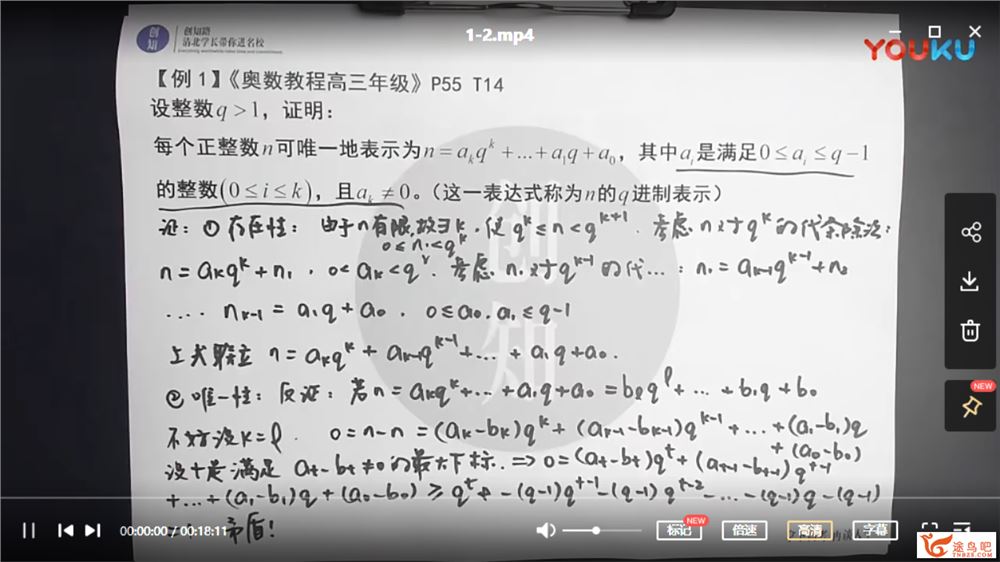 1-2.mp4
创知
创知路
清北学长带你进名校
YOUKU
【例1】《奥数教程高三年级》P55 T14
设整数q>1，证明：
每个正整数n可唯一地表示为n=a_k q^k+...+a_1q+a_0，其中a_i是满足0≤a_i≤q-1
的整数(0≤i≤k)，且a_k≠0。（这一表达式称为n的q进制表示）
证：① 存在性：由于n有限,故∃k,使q^k≤n<q^{k+1}. 考虑n对q^k的代余除法：
0≤n_1<q^k
n=a_kq^k+n_1, 0<a_k<q. 考虑n_1对q^{k-1}的代…：n_1=a_{k-1}q^{k-1}+n_2
.... n_{k-1}=a_1q+a_0. 0≤a_0,a_1≤q-1
上式联立 n=a_kq^k+a_{k-1}q^{k-1}+...+a_1q+a_0.
② 唯一性：反证：若n=a_kq^k+...+a_1q+a_0=b_lq^l+...+b_1q+b_0
不妨设k=l. 0=n-n=(a_k-b_k)q^k+(a_{k-1}-b_{k-1})q^{k-1}+...+(a_1-b_1)q
+(a_0-b_0)
设t是满足a_t-b_t≠0的最大下标.⇒0=(a_t-b_t)q^t+(a_{t-1}-b_{t-1})q^{t-1}
+...+(a_1-b_1)q+(a_0-b_0)≥q^t+-(q-1)q^{t-1}-(q-1)q^{t-2}-...-(q-1)q-(q-1)
矛盾！
00:00:00 / 00:18:11
标记
NEW
倍速
高清
字幕
NEW
途鸟吧
TNBZS.COM